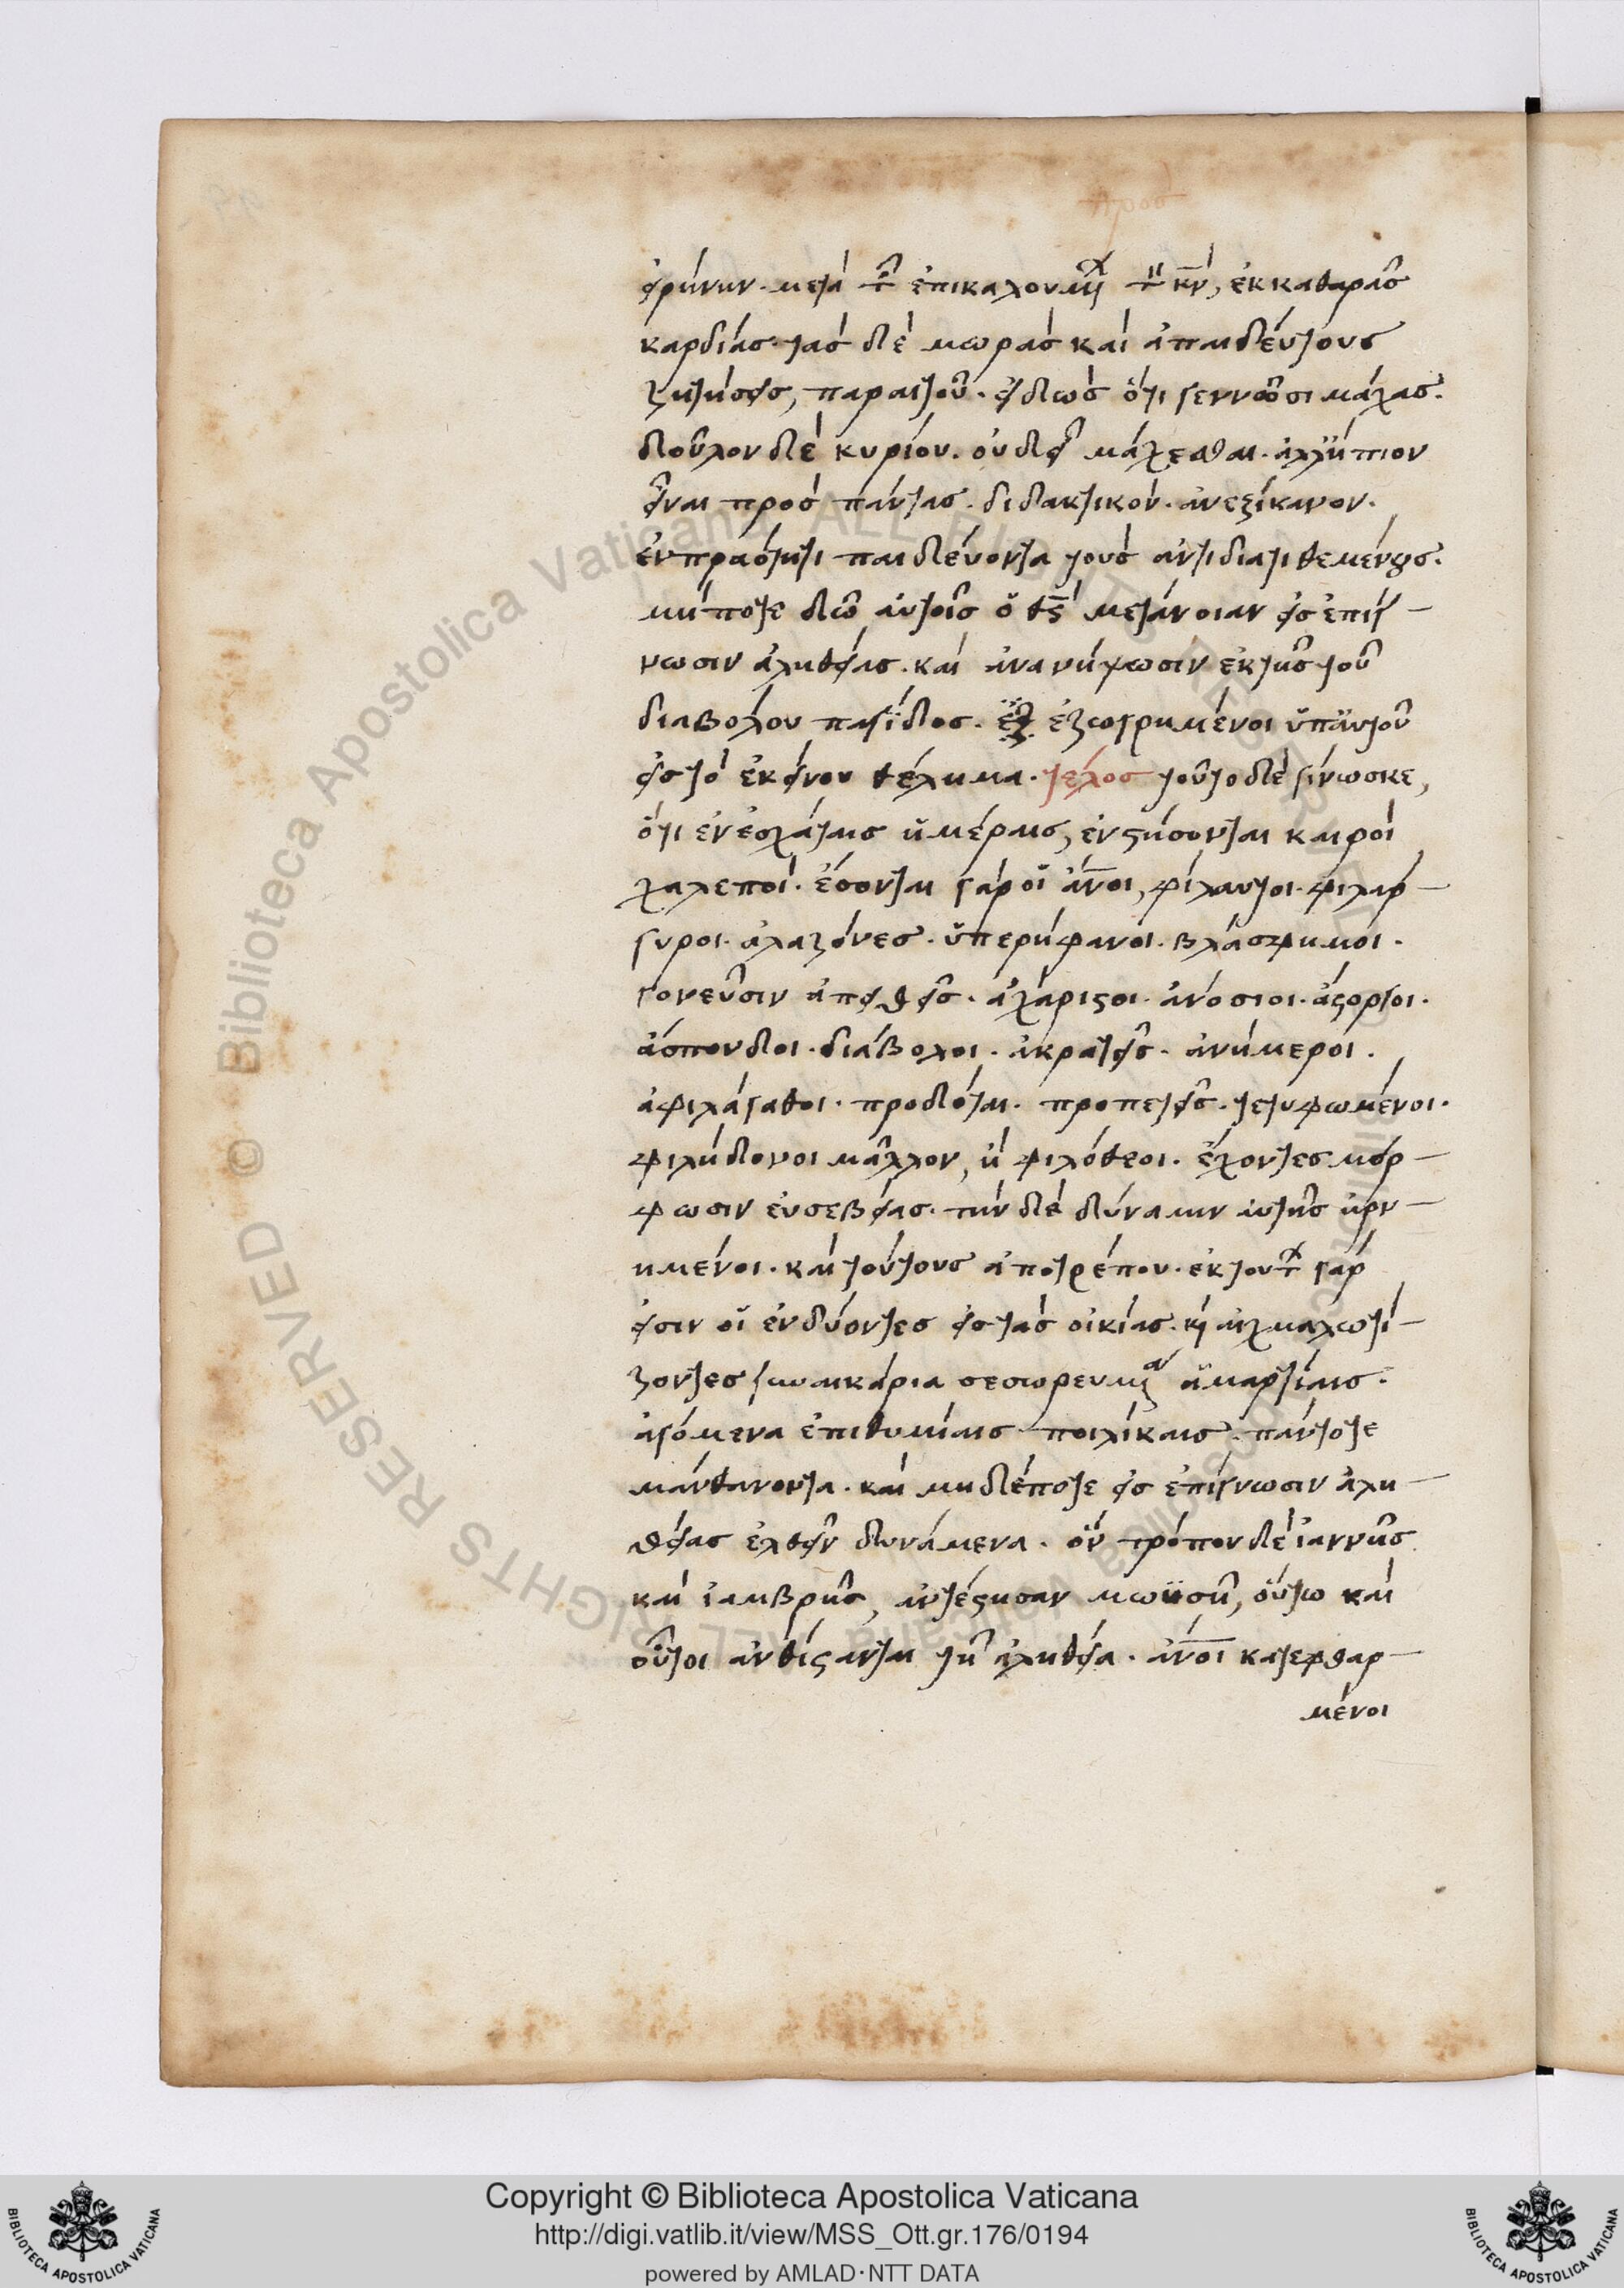 εἰρήνην· μετὰ τῶν ἐπικαλουμένων τὸν κν̄, ἐκ καθαρᾶς
καρδίας· τὰς δὲ μωρὰς καὶ ἀπαιδεύτους
ζητήσεις, παραιτοῦ· εἰδὼς ὅτι γεννῶσι μάχας·
δοῦλον δὲ κυρίου· οὐ δεῖ μάχεσθαι· ἀλλἤπιον
εἶναι πρὸς πάντας· διδακτικόν· ἀνεξίκακον·
ἐν πραότητι παιδεύοντα τοὺς ἀντιδιατιθεμένους·
μήποτε δῶ αὐτοῖς ὁ θς̄ μετάνοιαν εἰς ἐπίγ–
νωσιν ἀληθείας· καὶ ἀνανήψωσιν ἐκ τῆς τοῦ
διαβόλου παγίδος· ἐζωγρημένοι ὑπαὐτοῦ
εἰς τὸ ἐκείνου θέλημα· τέλος τοῦτο δὲ γίνωσκε,
ὅτι ἐν ἐσχάταις ἡμέραις, ἐνστήσονται καιροὶ
χαλεποί· ἔσονται γὰρ οἱ ἄν̄οι, φίλαυτοι· φιλάρ–
γυροι· ἀλαζόνες· ὑπερήφανοι· βλάσφημοι·
γονεῦσιν ἀπειθεῖς· ἀχάριστοι· ἀνόσιοι· ἄστοργοι·
ἄσπονδοι· διάβολοι· ἀκρατεῖς· ἀνήμεροι·
ἀφιλάγαθοι· προδόται· προπετεῖς· τετυφωμένοι·
φιλήδονοι μᾶλλον, ἢ φιλόθεοι· ἔχοντες μόρ–
φωσιν εὐσεβείας· τὴν δὲ δύναμιν αὐτῆς ἠρν–
ημένοι· καὶ τούτους ἀποτρέπου· ἐκ τούτων γάρ
εἰσιν οἱ ἐνδύοντες εἰς τὰς οἰκίας· καὶ αἰχμαλωτί–
ζοντες γυναικάρια σεσωρευμένα ἁμαρτίαις·
ἀγόμενα ἐπιθυμίαις ποιλίκαις· πάντοτε
μάνθανοντα· καὶ μηδέποτε εἰς ἐπίγνωσιν ἀλη–
θείας ἐλθεῖν δυνάμενα· ὃν τρόπον δὲ ἰαννῆς
καὶ ἰαμβρῆς, ἀντέστησαν μωϋσῆ, οὕτω καὶ
οὗτοι ἀνθίστανται τῆ ἀληθεία· ἄν̄οι κατεφθαρ–
μένοι
Copyright © Biblioteca Apostolica Vaticana
http://digi.vatlib.it/view/MSS_Ott.gr.176/0194
powered by AMLAD·NTT DATA
BIBLIOTECA APOSTOLICA VATICANA
BIBLIOTECA APOSTOLICA VATICANA
© Biblioteca Apostolica Vaticana ALL RIGHTS RESERVED